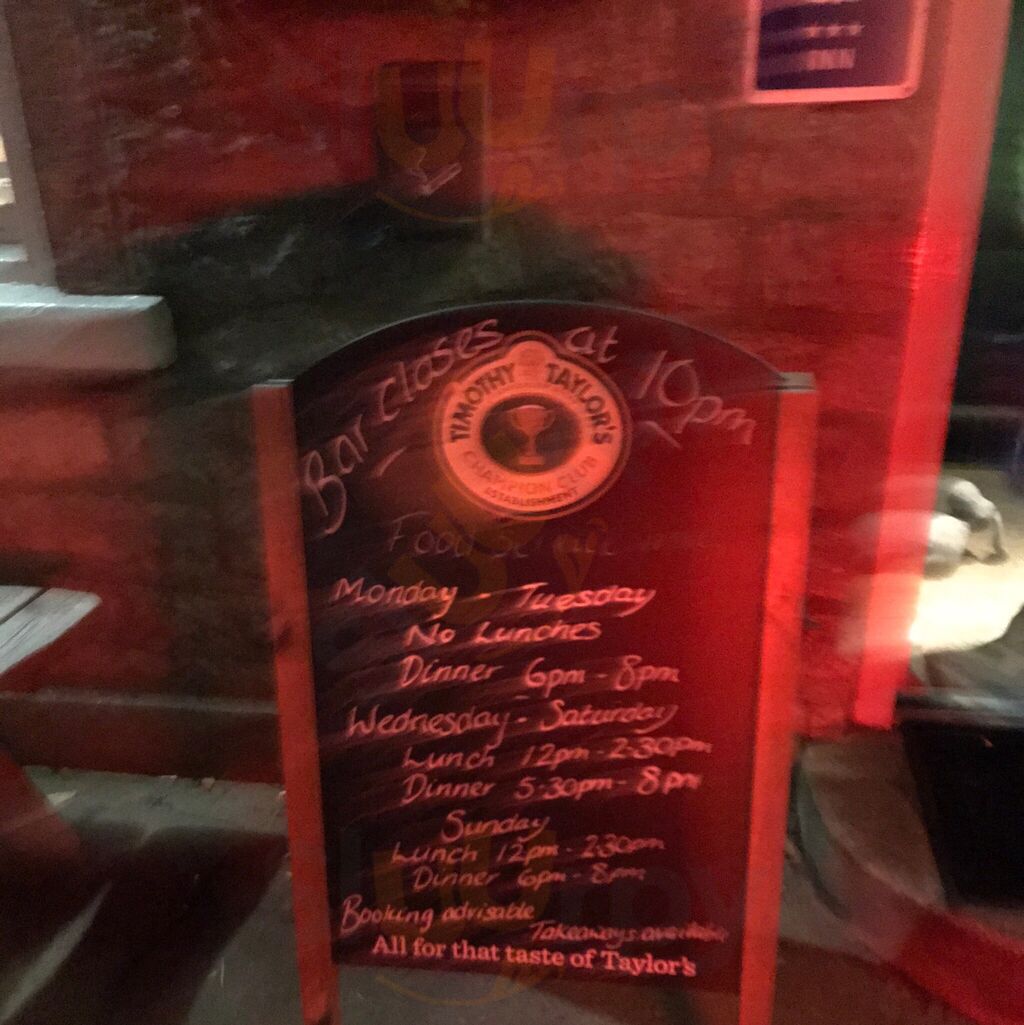 INN
Bar closes at 10pm
TIMOTHY TAYLOR'S
CHAMPION CLUB
ESTABLISHMENT
Food Service
Monday - Tuesday
No Lunches
Dinner 6pm - 8pm
Wednesday - Saturday
Lunch 12pm - 2·30pm
Dinner 5·30pm - 8pm
Sunday
Lunch 12pm - 2·30pm
Dinner 6pm - 8pm
Booking advisable
Takeaways available
All for that taste of Taylor's